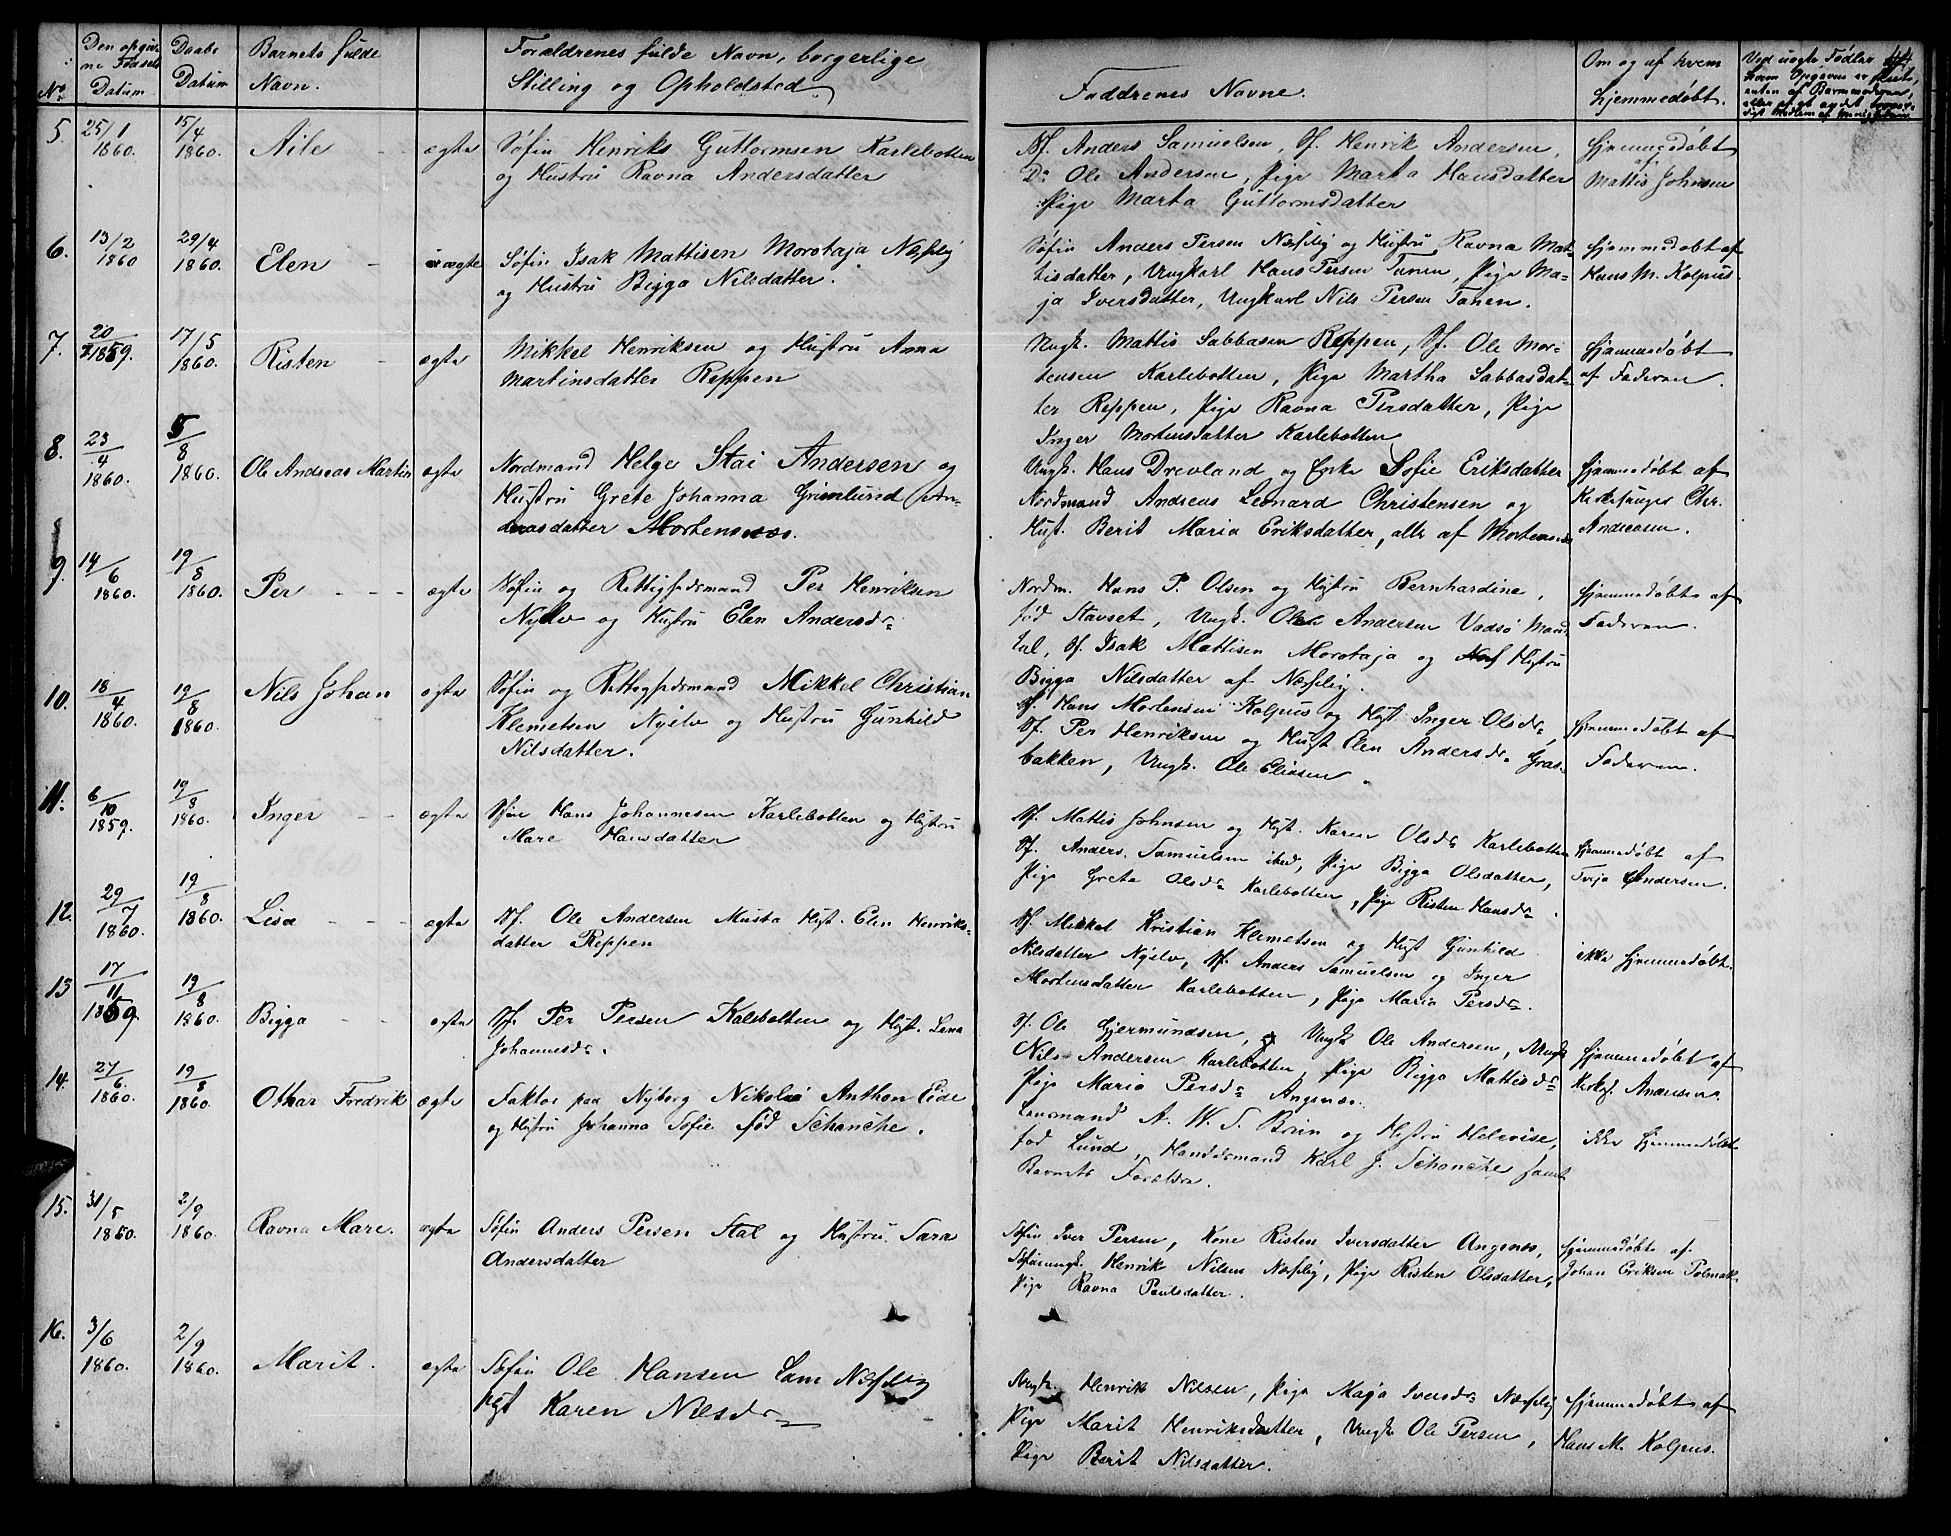 No
Den opgiv-
ne Fødsels
Datum
Daabs
Datum
Barnets fulde
Navn.
Forældrenes fulde Navn, borgerlige
Stilling og Opholdsted
Faddrenes Navne.
Om og af hvem
hjemmedøbt.
Ved uægte Fødsler
44
5.
25/1
1860.
15/4
1860.
Aile
ægte
Søfin Henriks Guttormsen Karlebotten
og Hustru Ravna Andersdatter
Sf. Anders Samuelsen, Sf. Henrik Andersen,
Do Ole Andersen, Pige Marta Hansdatter
Pige Marta Guttormsdatter
hjemmedøbt
af
Mattis Johnsen
6.
13/2
1860
29/4
1860.
Elen
ægte
Søfin Isak Mattisen Morotaja Næsseby
og Hustru Bigga Nilsdatter.
Søfin Anders Persen Næsseby og Hustru Ravna Mat-
tisdatter, Ungkarl Hans Persen Tanen, Pige Ma-
ja Iversdatter, Ungkarl Nils Persen Tanen.
hjemmedøbt af
Hans M. Kolpus
7.
20
1859.
17/5
1860.
Risten
ægte
Mikkel Henriksen og Hustru Anna
Martinsdatter Reppen
Ungk. Mattis Sabbasen Reppen, Sf. Ole Mor-
tensen Karlebotten, Pige Martha Sabbasdat-
ter Reppen, Pige Ravna Persdatter, Pige
Inger Mortensdatter Karlebotten
hjemmedøbt
af Faderen.
8.
23/4
1860.
5/8
1860.
Ole Andreas Martin
ægte
Nordmand Helge Stai Andersen og
Hustru Grete Johanna Grimlund An-
dreasdatter Mortensnæs.
Ungk. Hans Drevland og Enke Sofie Eriksdatter
Nordmand Andreas Leonard Christensen og
Hust. Berit Maria Eriksdatter, alle af Mortensnæs
hjemmedøbt af
Kirkesanger Chr.
Andersen.
9.
14/6
1860.
19/8
1860.
Per
ægte
Søfin og Rettighedsmand Per Henriksen
Nyelv og Hustru Elen Andersdr
Nordm. Hans P. Olsen og Hustru Bernhardine,
fød Stavset, Ungk. Ole Andersen Vadsø Mand-
tal, Sf. Isak Mattisen Morotaja og Hustru
Bigga Nilsdatter af Næsseby.
hjemmedøbt af
Faderen.
10.
18/4
1860.
19/8
1860.
Nils Johan
ægte
Søfin og Rettighedsmand Mikkel Christian
Klemetsen Nyelv og Hustru Gunhild
Nilsdatter.
Sf. Hans Mortensen Kolpus og Hust. Inger Olsdr,
Sf. Per Henriksen og Hust Elen Andersdr Græs-
bakken, Ungk. Ole Eliasen.
hjemmedøbt af
Faderen.
11.
6/10
1859.
19/8
1860.
Inger
ægte
Sfin Hans Johannesen Karlebotten og Hustru
Mare Hansdatter
Sf. Mattis Johnsen og Hust. Karen Olsdr Karlebotten
Sf. Anders Samuelsen ibid, Pige Bigga Olsdatter,
Pige Grete Olsdr Karlebotten, Pige Risten Hansdr.
hjemmedøbt af
Andersen.
12.
29/7
1860.
19/8
1860.
Lisa
ægte
Sf. Ole Andersen Musta Hust. Elen Henriks-
datter Reppen
Sf. Mikkel Kristian Klemetsen og Hust Gunhild
Nilsdatter Nyelv, Sf. Anders Samuelsen og Inger
Mortensdatter Karlebotten, Pige Maria Persdr.
ikke hjemmedøbt.
13
17/11
1859.
19/8
1860.
Bigga
ægte
Sf. Per Persen Kalebotten og Hust. Lena
Johannesdr.
Sf. Ole Gjermundsen, Ungk Ole Andersen, Ungk
Nils Andersen Karlebotten, Pige Bigga Mattisdr
Pige Maria Persdr Angsnæs.
hjemmedøbt af
Kirkes. Andersen.
14.
27/6
1860.
19/8
1860.
Othar Fredrik
ægte
Faktor paa Nyborg Nikolai Anthon Eide
og Hustru Johanna Sofie fød Schanche.
Lensmand A. W. S. Brun og Hustru Helvise,
fød Lund, Handelsmand Karl J. Schanche samt
Barnets Forældre.
ikke hjemmedøbt
15.
31/5
1860.
2/9
1860.
Ravna Mare.
ægte
Søfin Anders Persen Stal og Hustru Sara
Andersdatter
Søfin Iver Persen, Kone Risten Iversdatter Angsnæs,
Søfinungk. Henrik Nilsen Næsseby, Pige Risten Olsdatter,
Pige Ravna Paulsdatter.
hjemmedøbt af
Johan Eriksen Polmak
16.
3/6
1860.
2/9
1860.
Marit.
ægte
Søfin Ole Hansen Lam Næsseby
Hust Karen Nilsdr
Ungk. Henrik Nilsen, Pige Maja Iversdr Næsseby
Pige Marit Henriksdatter, Ungk Ole Persen,
Pige Berit Nilsdatter.
hjemmedøbt af
Hans M. Kolpus.